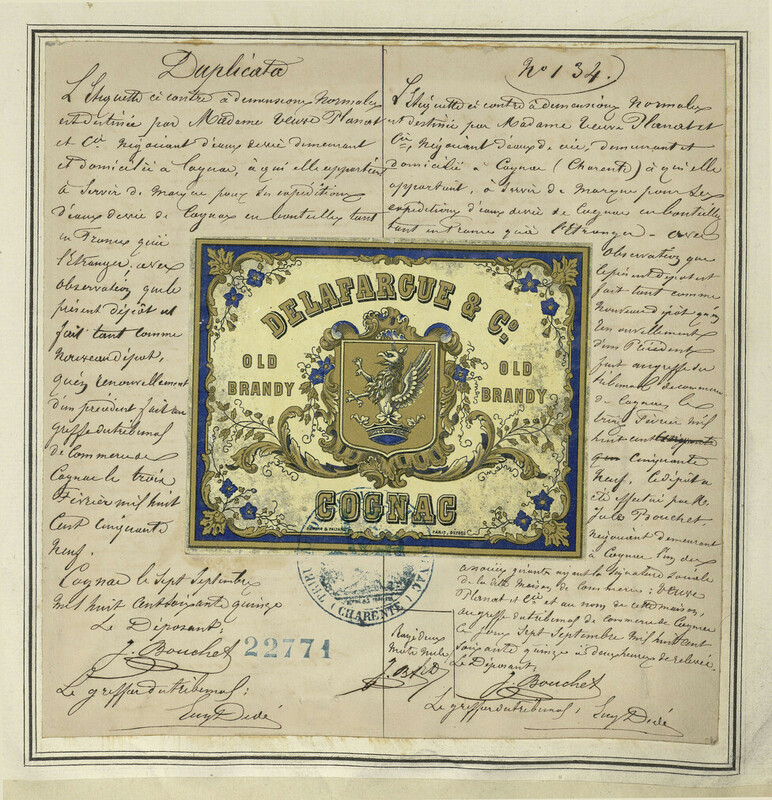 Duplicata
L'étiquette ci contre à dimensions normales
est destinée par Madame Veuve Planat
et Cie, négociant d'eaux de vie demeurant
et domiciliée à Cognac, à qui elle appartient
à servir de marque pour ses expéditions
d'eaux de vie de Cognac en bouteilles tant
en France qu'à
l'Etranger, avec
observation que le
présent dépôt est
fait tant comme
nouveau dépôt,
qu'en renouvellement
d'un précédent fait au
greffe du tribunal
de Commerce de
Cognac le trois
Février mil huit
Cent cinquante
neuf.
Cognac le Sept Septembre
mil huit cent soixante quinze
Le Déposant:
J. Bouchet
22771
Le greffier du tribunal:
Eug Dedé
No 134.
L'étiquette ci contre à dimensions normales
est destinée par Madame Veuve Planat et
Cie, négociant d'eaux de vie, demeurant et
domiciliée à Cognac (Charente) à qui elle
appartient, à servir de marque pour ses
expéditions d'eaux de vie de Cognac en bouteilles
tant en France qu'à l'Etranger - avec
observation que
le présent dépôt est
fait tant comme
nouveau dépôt qu'en
renouvellement
d'un Précédent
fait au greffe du
tribunal de commerce
de Cognac le
trois Février mil
huit cent cinquante
neuf. Ce dépôt a
été effectué par M.
Jules Bouchet,
négociant demeurant
à Cognac l'un des
associés gérants ayant la signature sociale
de la dite maison de Commerce: Veuve
Planat et Cie et au nom de cette maison,
au greffe du tribunal de commerce de Cognac
ce jour Sept Septembre mil huit cent
soixante quinze à deux heures de relevée.
Le Déposant,
J. Bouchet
Le greffier du tribunal: Eug Dedé
Rayé deux
mots nuls
J. B
DELAFARGUE & Co.
OLD
BRANDY
OLD
BRANDY
COGNAC
PARIS
(CHARENTE)